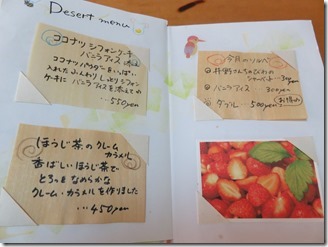 Desert menu
ココナツ シフォンケーキ
バニラアイス 添え
ココナツパウダーをいっぱい
入れたふんわりしっとりシフォン
ケーキに バニラアイスを添えての
…550yen
ほうじ茶のクレーム
カラメル
香ばしいほうじ茶で
とろっとなめらかな
クレーム・カラメルを作りました
…450yen
今月のソルベ
井野さんちのびわの
シャーベット…300yen
バニラアイス 300yen
※ ダブル 500yen お得の